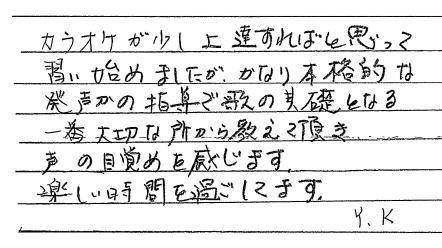 カラオケが少し上達すればと思って
習い始めましたが、かなり本格的な
発声からの指導で歌の基礎となる
一番大切な所から教えて頂き
声の目覚めを感じます。
楽しい時間を過ごしてます。
Y.K